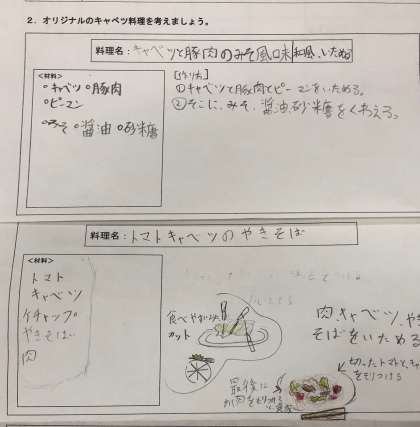 2. オリジナルのキャベツ料理を考えましょう。
料理名：キャベツと豚肉のみそ風味和風いため
<材料>
・キャベツ ・豚肉
・ピーマン
・みそ ・醤油 ・砂糖
[作り方]
①キャベツと豚肉とピーマンをいためる。
②そこに、みそ、醤油、砂糖をくわえる。
料理名：トマトキャベツのやきそば
<材料>
トマト
キャベツ
ケチャップ
やきそば
肉
食べやすく
カット
肉キャベツ、や
そばをいためる
切ったトマトと、
をもりつける
最後に